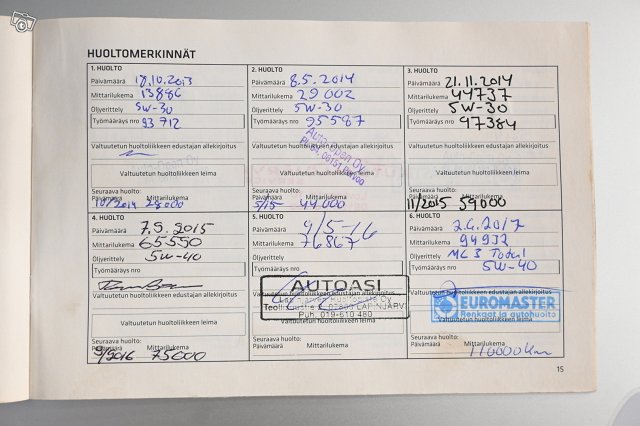 HUOLTOMERKINNÄT
1. HUOLTO
Päivämäärä 18.10.2013
Mittarilukema 13886
Öljyerittely 5W-30
Työmääräys nro 93712
Valtuutetun huoltoliikkeen edustajan allekirjoitus
Valtuutetun huoltoliikkeen leima
Seuraava huolto:
Päivämäärä Mittarilukema
10/2014 28000
2. HUOLTO
Päivämäärä 8.5.2014
Mittarilukema 29002
Öljyerittely 5W-30
Työmääräys nro 95587
Valtuutetun huoltoliikkeen edustajan allekirjoitus
Oy
Valtuutetun huoltoliikkeen leima
Seuraava huolto:
Päivämäärä Mittarilukema
5/15 44000
3. HUOLTO
Päivämäärä 21.11.2014
Mittarilukema 44737
Öljyerittely 5W-30
Työmääräys nro 97384
Valtuutetun huoltoliikkeen edustajan allekirjoitus
Valtuutetun huoltoliikkeen leima
Seuraava huolto:
Päivämäärä Mittarilukema
11/2015 59000
4. HUOLTO
Päivämäärä 7.5.2015
Mittarilukema 65550
Öljyerittely 5W-40
Työmääräys nro
Valtuutetun huoltoliikkeen edustajan allekirjoitus
Valtuutetun huoltoliikkeen leima
Seuraava huolto:
Päivämäärä Mittarilukema
5/2016 75000
5. HUOLTO
Päivämäärä 4/5-16
Mittarilukema 76867
Öljyerittely
Työmääräys nro
AUTOASI
LAPINJÄRVI
Puh. 019-610 480
Valtuutetun huoltoliikkeen leima
Seuraava huolto:
Päivämäärä Mittarilukema
6. HUOLTO
Päivämäärä 2.6.2017
Mittarilukema 94932
Öljyerittely MC3 Total
Työmääräys nro 5W-40
Valtuutetun huoltoliikkeen edustajan allekirjoitus
EUROMASTER
Renkaat ja autohuolto
Seuraava huolto:
Päivämäärä Mittarilukema
110000 km
15